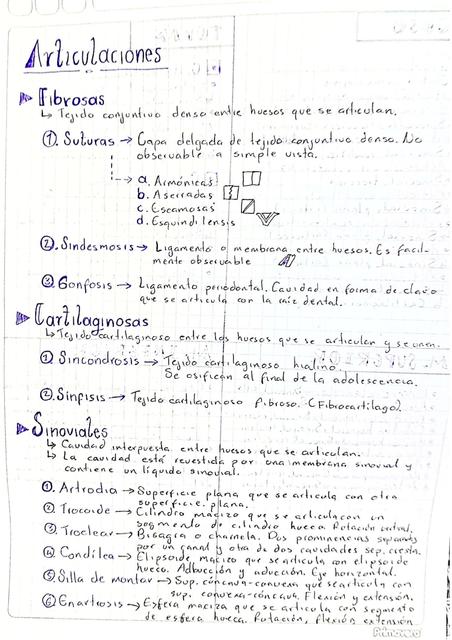 Articulaciones
Fibrosas
↳ Tejido conjuntivo denso entre huesos que se articulan.
①. Suturas → Capa delgada de tejido conjuntivo denso. No
observable a simple vista.
a. Armónicas
b. Aserradas
c. Escamosas
d. Esquindilensis
②. Sindesmosis → Ligamento o membrana entre huesos. Es facil-
mente observable
③ Gonfosis → Ligamento periodontal. Cavidad en forma de clavo
que se articula con la raíz dental.
Cartilaginosas
↳ Tejido cartilaginoso entre los huesos que se articulan y se unen.
①. Sincondrosis → Tejido cartilaginoso hialino.
Se osifican al final de la adolescencia.
②. Sinfisis → Tejido cartilaginoso fibroso. (Fibrocartilago).
Sinoviales
↳ Cavidad interpuesta entre huesos que se articulan.
↳ La cavidad está revestida por una membrana sinovial y
contiene un líquido sinovial.
①. Artrodia → Superficie plana que se articula con otra
superficie plana.
② Trocoide → Cilindro macizo que se articula con un
segmento de cilindro hueco. Rotación
③ Troclear → Bisagra o charnela. Dos prominencias separadas
por un canal y otra de dos cavidades sep. cresta.
④ Condílea → Elipsoide macizo que se articula con elipsoide
hueco. Adbucción y aducción. Eje horizontal.
⑤ Silla de montar → Sup. cóncava-convexa que se articula con
sup. convexa-cóncava. Flexión y extensión.
⑥ Enartosis → Esfera maciza que se articula con segmento
de esfera hueca. Rotación, flexión extensión